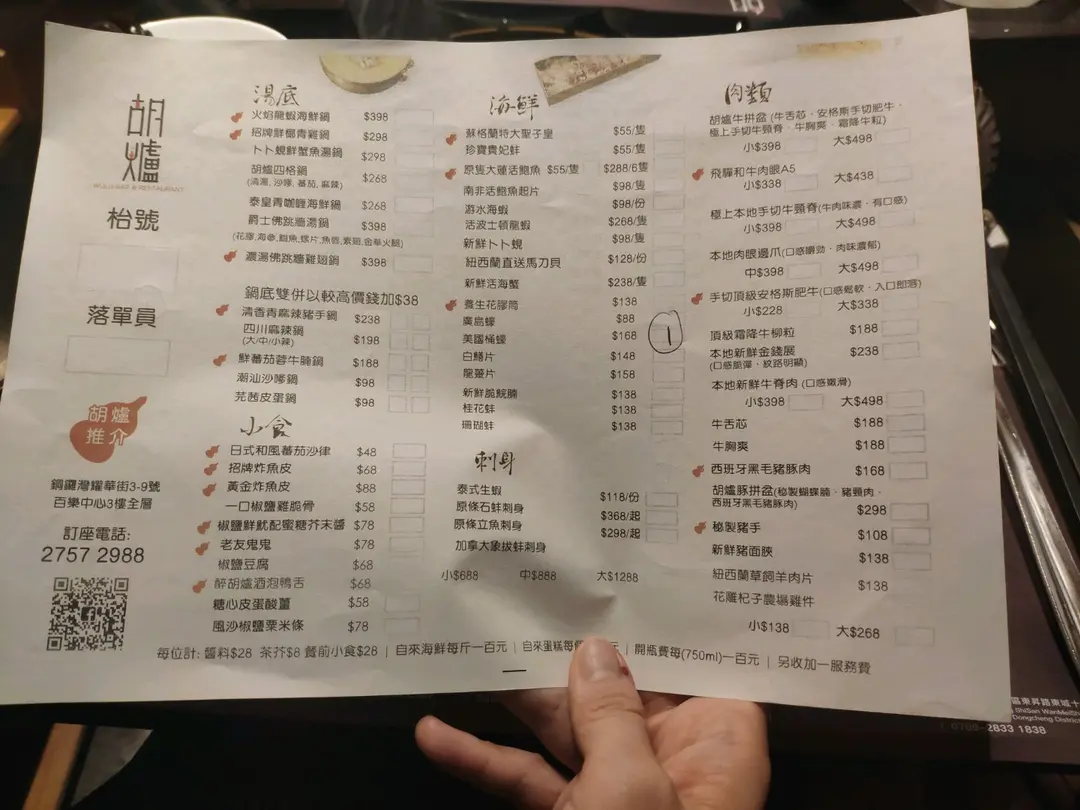 胡爐
枱號
落單員
胡爐
推介
銅鑼灣耀華街3-9號
百樂中心3樓全層
訂座電話:
2757 2988
湯底
火焰龍蝦海鮮鍋 $398
招牌鮮椰青雞鍋 $298
卜卜蜆鮮蟹魚湯鍋 $298
胡爐四格鍋 $268
(清湯, 沙嗲, 蕃茄, 麻辣)
泰皇青咖喱海鮮鍋 $268
爵士佛跳牆湯鍋 $398
濃湯佛跳牆雞翅鍋 $398
鍋底雙併以較高價錢加$38
清香青麻辣豬手鍋 $238
四川麻辣鍋 $198
(大/中/小辣)
鮮蕃茄蓉牛腩鍋 $188
潮汕沙嗲鍋 $98
芫茜皮蛋鍋 $98
小食
日式和風蕃茄沙律 $48
招牌炸魚皮 $68
黃金炸魚皮 $88
一口椒鹽雞脆骨 $58
椒鹽鮮魷配蜜糖芥末醬 $78
老友鬼鬼 $78
椒鹽豆腐 $68
醉胡爐酒泡鴨舌 $68
糖心皮蛋酸薑 $58
風沙椒鹽粟米條 $78
海鮮
蘇格蘭特大聖子皇 $55/隻
珍寶貴妃蚌 $55/隻
原隻大蓮活鮑魚 $55/隻 $288/6隻
南非活鮑魚起片 $98/隻
游水海蝦 $98/份
活波士頓龍蝦 $268/隻
新鮮卜卜蜆 $98/隻
紐西蘭直送馬刀貝 $128/份
新鮮活海蟹 $238/隻
養生花膠筒 $138
廣島蠔 $88
美國桶蠔 $168 1
白鱔片 $148
龍躉片 $158
新鮮脆鯇腩 $138
桂花蚌 $138
珊瑚蚌 $138
刺身
泰式生蝦 $118/份
原條石蚌刺身 $368/起
原條立魚刺身 $298/起
加拿大象拔蚌刺身
小$688 中$888 大$1288
肉類
胡爐牛拼盆 (牛舌芯、安格斯手切肥牛、
極上手切牛頸脊、牛胸爽、霜降牛粒)
小$398 大$498
飛驒和牛肉眼A5
小$338 大$438
極上本地手切牛頸脊(牛肉味濃、有口感)
小$398 大$498
本地肉眼邊爪(口感嚼勁、肉味濃郁)
中$398 大$498
手切頂級安格斯肥牛(口感鬆軟、入口即溶)
小$228 大$338
頂級霜降牛柳粒 $188
本地新鮮金錢展 $238
(口感脆彈、紋路明顯)
本地新鮮牛脊肉 (口感嫩滑)
小$398 大$498
牛舌芯 $188
牛胸爽 $188
西班牙黑毛豬腩肉 $168
胡爐豚拼盆(秘製蝴蝶腩、豬頸肉、
西班牙黑毛豬腩肉) $298
秘製豬手 $108
新鮮豬面脥 $138
紐西蘭草飼羊肉片 $138
花雕杞子農場雞件
小$138 大$268
每位計: 醬料$28 茶芥$8 餐前小食$28 | 自來海鮮每斤一百元 | 自來蛋糕每 元 | 開瓶費每(750ml)一百元 | 另收加一服務費
區東昇路東城十
Dongcheng District
2833 1838